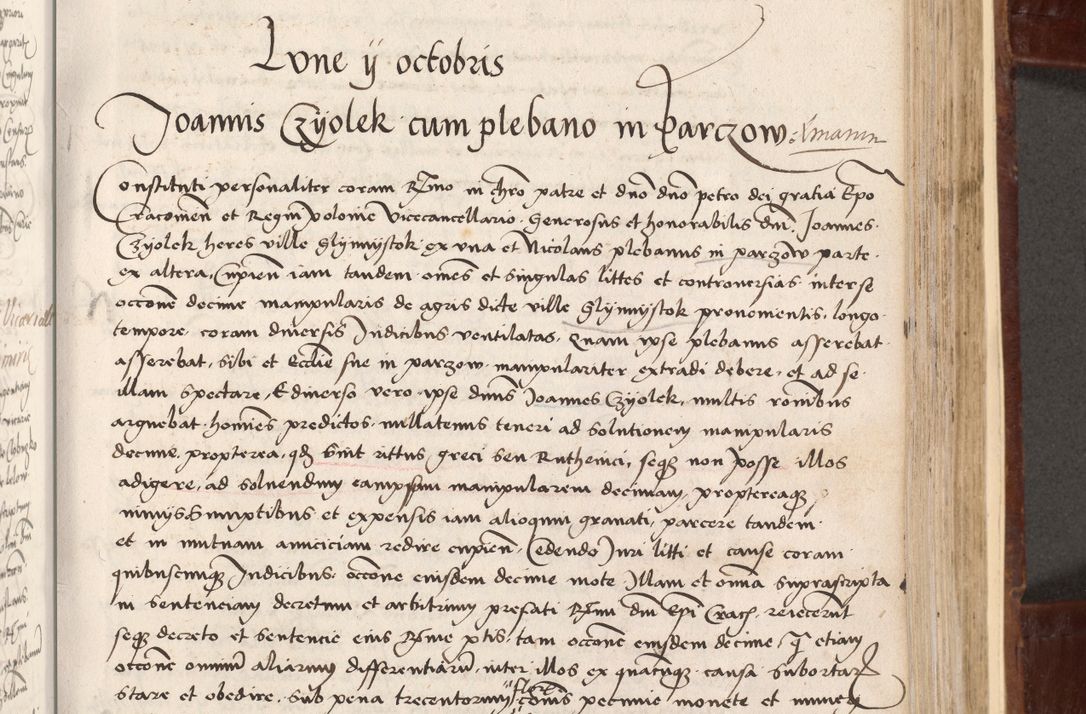 Lvne ij octobris
Joannis Czyolek cum plebano in Parczow
Constituti personaliter coram Rmo in chro patre et dno dno petro dei gratia Epo
Cracouien et Regni polonie Vicecancellario. Generosus et honorabilis dni. Joannes.
Czyolek heres ville Glynnystok ex vna et Nicolaus plebanus in parczow parte.
ex altera, Cupien iam tandem omes et singulas littes et controuersias inter se
occone decime manipularis de agris dicte ville Glynnystok prouenientis, longo.
tempore. coram diuersis Judicibus ventilatas, Quam ipse plebanus asserebat.
asserebat, sibi et Ecclie sue in parczow. manipulariter extradi debere. et ad se.
illam spectare, E diuerso vero. ipse dnus Joannes Czyolek, multis ronibus
arguebat homes predictos. nullatenus teneri ad solutionem manipularis
decime. propterea, qd sint rittus greci seu Ruthenici, seqz non posse illos
adigere, ad soluendum eam manipularem decimam, propterea qz
nimys sumptibus et expensis iam alioquin grauati, parcere tandem.
et in mutuam amiciciam redire cupien. Cedendo Juri litti et cause coram.
quibuscumqz Judicibus. occone eiusdem decime mote Illam et omia suprascripta
in sentenciam decretum et arbitrium prefati Rmi dni Epi Crac. reiecerut
seqz decreto et sentencie eius Rme ptis. tam occone eiusdem decime, q etiam
occone omnium aliarum differentiaru. inter illos ex quacuqz causa subortar
stare et obedire. sub pena trecentorum flore coms pecunie monete et numeri